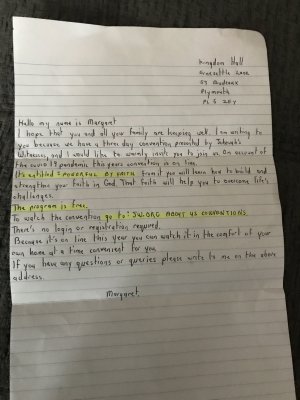 Kingdom Hall
Ernesettle Lane
St Budeaux
Plymouth
PL5 2EY
Hello my name is Margaret
I hope that you and all your family are keeping well. I am writing to
you because we have a three day convention presented by Jehovah's
Witnesses, and I would like to warmly invite you to join us. On account of
the covid 19 pandemic this years convention is on line.
It's entitled :- POWERFUL BY FAITH From it you will learn how to build and
strengthen your faith in God That faith will help you to overcome life's
challenges.
The program is free.
To watch the convention go to: JW.ORG ABOUT US CONVENTIONS
There's no login or registration required.
Because it's on line this year you can watch it in the comfort of your
own home at a time convenient for you.
If you have any questions or queries please write to me on the above
address.
Margaret.